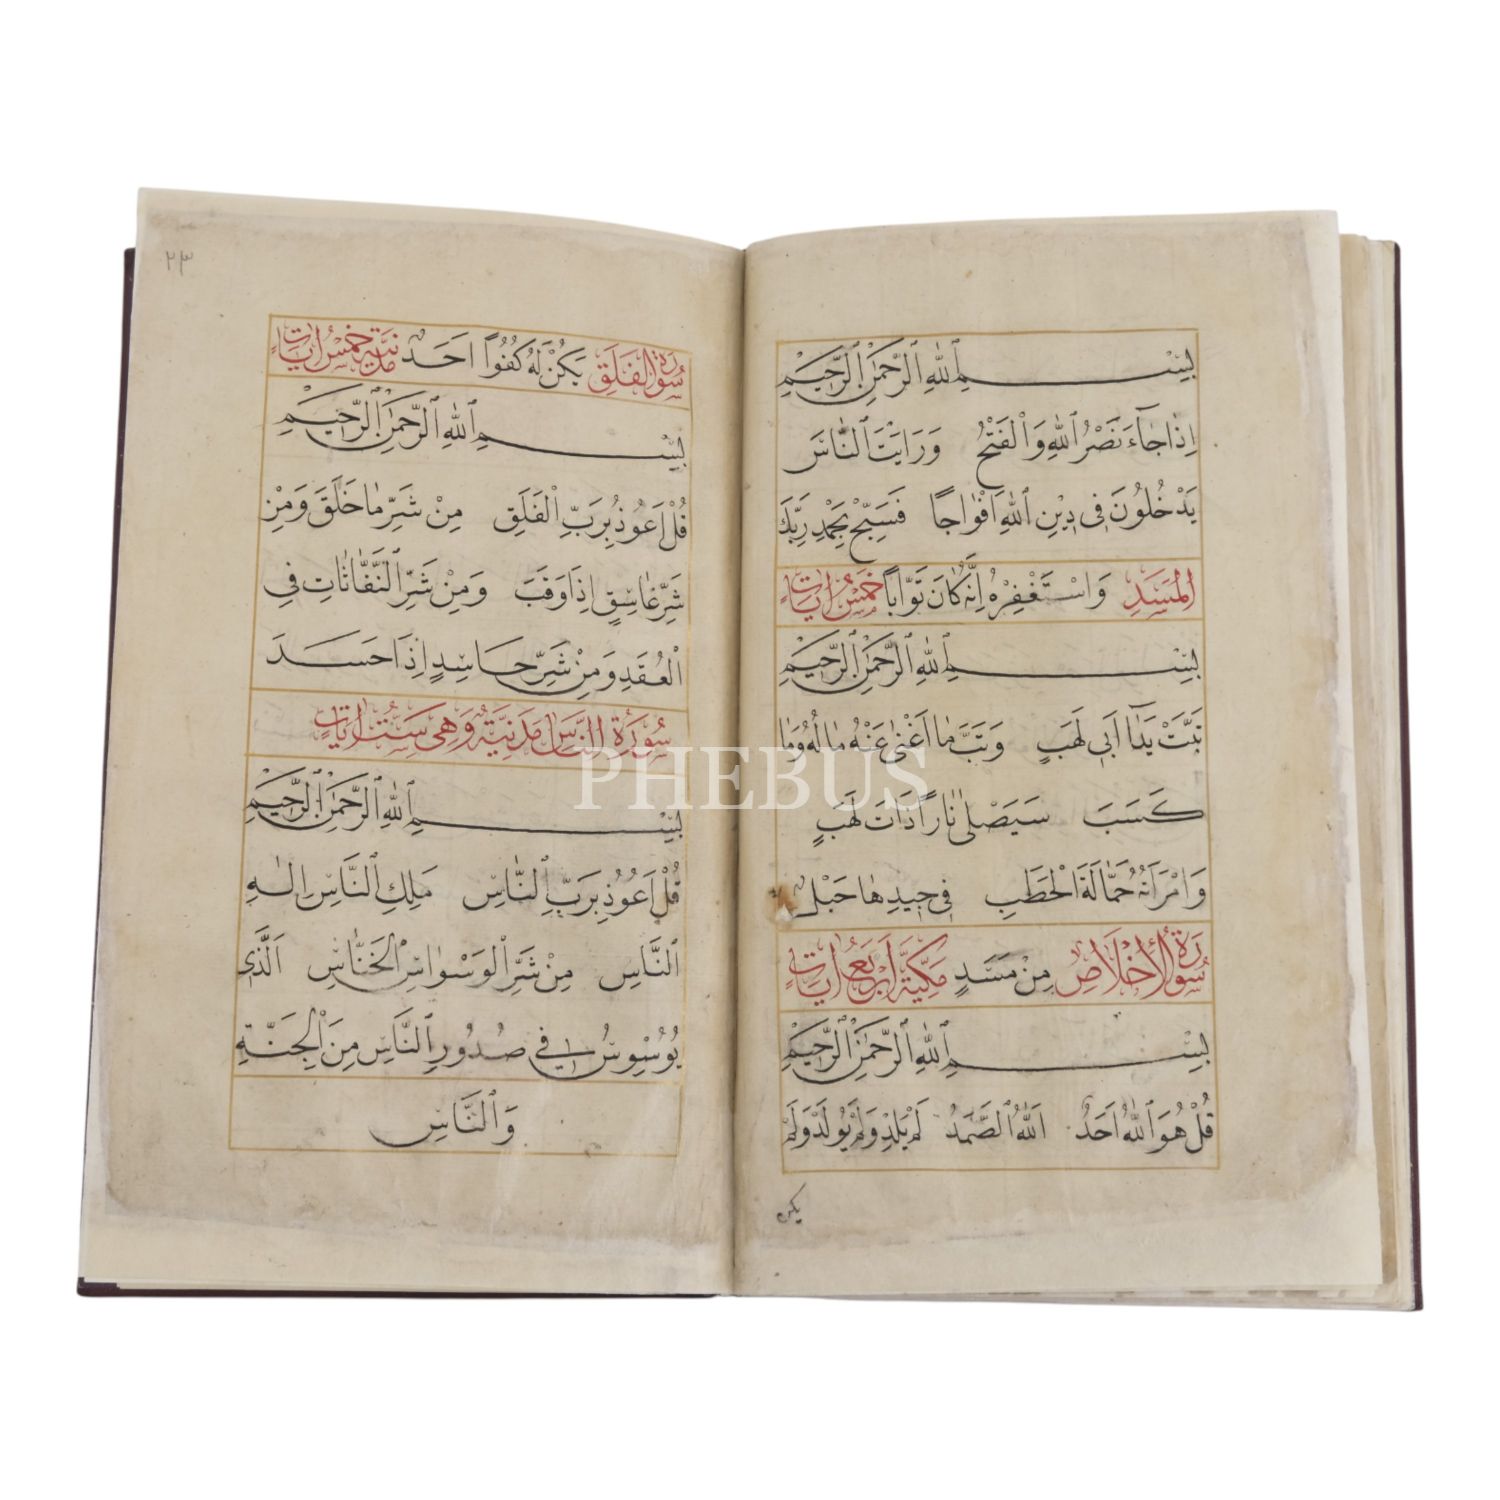 بِسْمِ ٱللهِ ٱلرَّحْمٰنِ ٱلرَّحِيمِ
اِذَا جَآءَ نَصْرُ ٱللهِ وَالْفَتْحُ وَرَاَيْتَ النَّاسَ
يَدْخُلُونَ فِى دِينِ ٱللهِ اَفْوَاجًا فَسَبِّحْ بِحَمْدِ رَبِّكَ
الْمَسَدِ وَاسْتَغْفِرْهُ اِنَّهُ كَانَ تَوَّابًا خَمْسُ اٰيَاتٍ
بِسْمِ ٱللهِ ٱلرَّحْمٰنِ ٱلرَّحِيمِ
تَبَّتْ يَدَٓا اَبِى لَهَبٍ وَتَبَّ مَا اَغْنٰى عَنْهُ مَالُهُ وَمَا
كَسَبَ سَيَصْلٰى نَارًا ذَاتَ لَهَبٍ
وَامْرَاَتُهُ حَمَّالَةَ الْحَطَبِ فِى جِيدِهَا حَبْلٌ
سُورَةُ الْأِخْلَاصِ مِنْ مَسَدٍ مَكِّيَّةٌ اَرْبَعُ اٰيَاتٍ
بِسْمِ ٱللهِ ٱلرَّحْمٰنِ ٱلرَّحِيمِ
قُلْ هُوَ ٱللهُ اَحَدٌ اَللهُ الصَّمَدُ لَمْ يَلِدْ وَلَمْ يُولَدْ وَلَمْ
يكن
٢٣
سُورَةُ الْفَلَقِ يَكُنْ لَهُ كُفُوًا اَحَدٌ مَدَنِيَّةٌ خَمْسُ اٰيَاتٍ
بِسْمِ ٱللهِ ٱلرَّحْمٰنِ ٱلرَّحِيمِ
قُلْ اَعُوذُ بِرَبِّ الْفَلَقِ مِنْ شَرِّ مَا خَلَقَ وَمِنْ
شَرِّ غَاسِقٍ اِذَا وَقَبَ وَمِنْ شَرِّ النَّفَّاثَاتِ فِى
الْعُقَدِ وَمِنْ شَرِّ حَاسِدٍ اِذَا حَسَدَ
سُورَةُ النَّاسِ مَدَنِيَّةٌ وَهِىَ سَتُّ اٰيَاتٍ
بِسْمِ ٱللهِ ٱلرَّحْمٰنِ ٱلرَّحِيمِ
قُلْ اَعُوذُ بِرَبِّ النَّاسِ مَلِكِ النَّاسِ اِلٰهِ
النَّاسِ مِنْ شَرِّ الْوَسْوَاسِ الْخَنَّاسِ اَلَّذِى
يُوَسْوِسُ فِى صُدُورِ النَّاسِ مِنَ الْجِنَّةِ
وَالنَّاسِ
PHEBUS